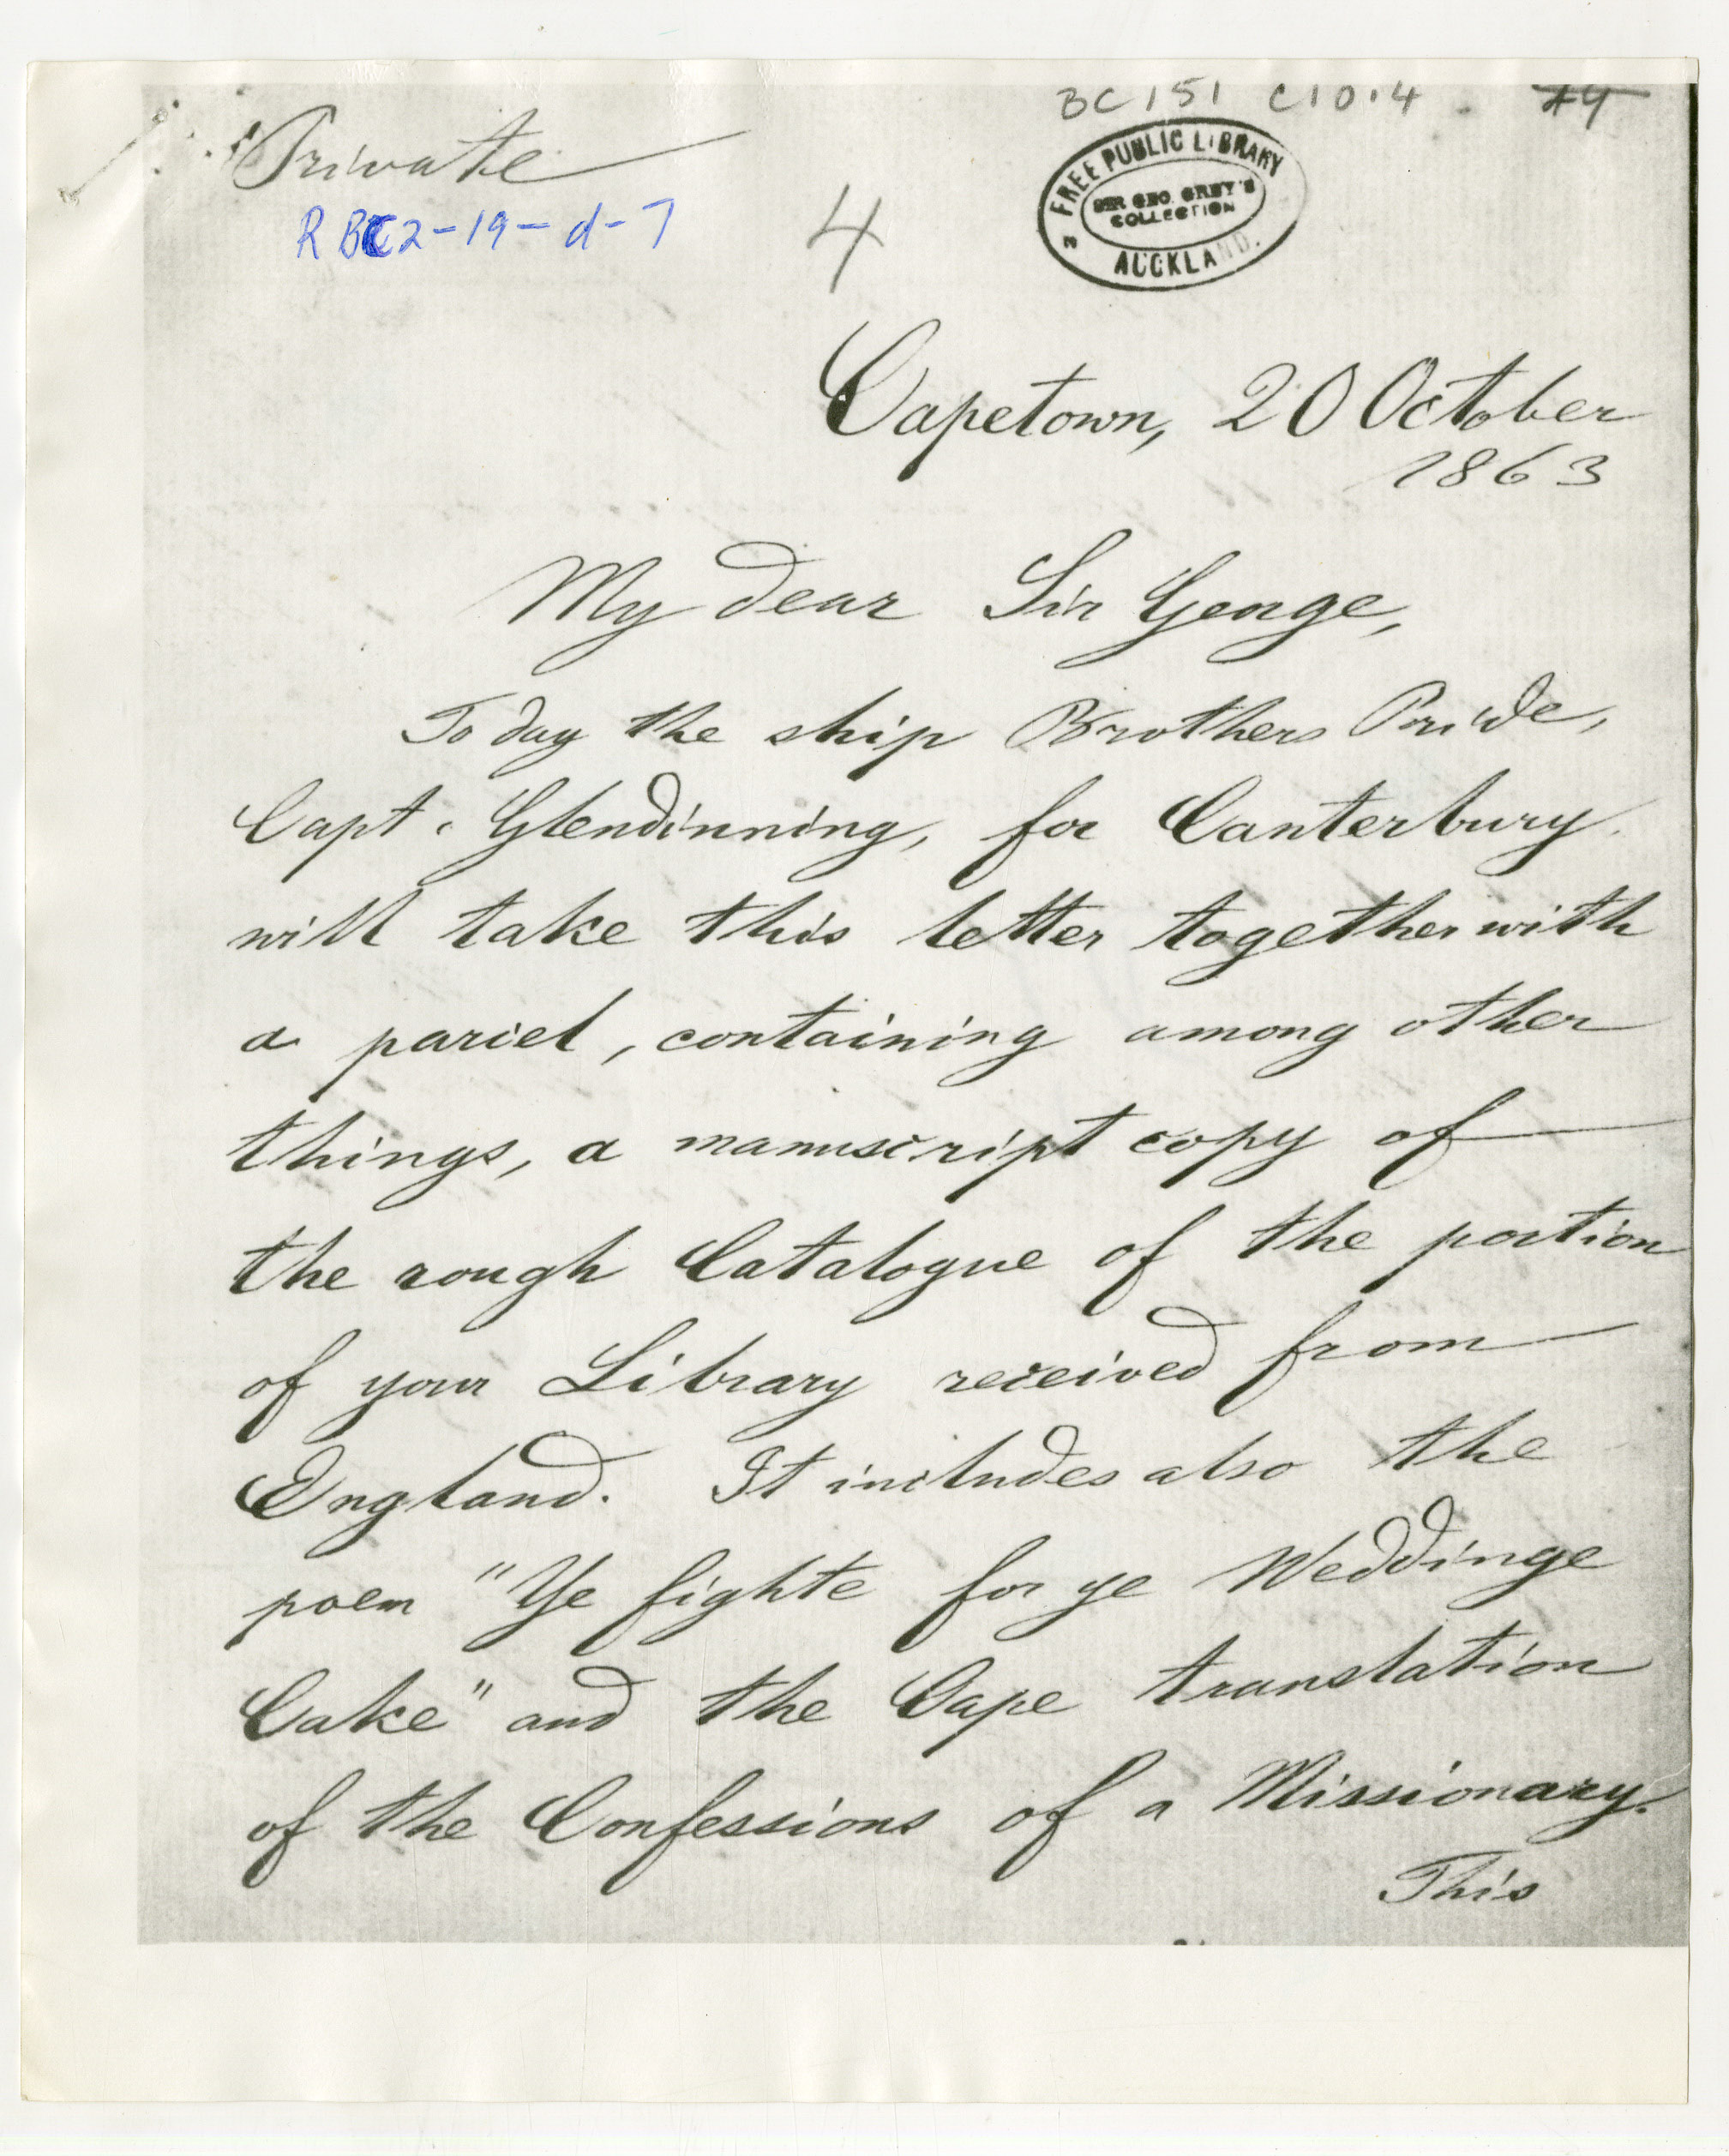 BC 151 C10.4 #4
Private
RBC2-19-d-7
4
FREE PUBLIC LIBRARY
SIR GEO. GREY'S
COLLECTION
AUCKLAND.
Capetown, 20 October
1863
My dear Sir George,
To day the ship Brothers Pride,
Capt. Glendinning, for Canterbury
will take this letter together with
a parcel, containing among other
things, a manuscript copy of
the rough Catalogue of the portion
of your Library received from
England. It includes also the
poem "Ye fighte for ye Weddinge
Cake" and the Cape translation
of the Confessions of a Missionary.
This